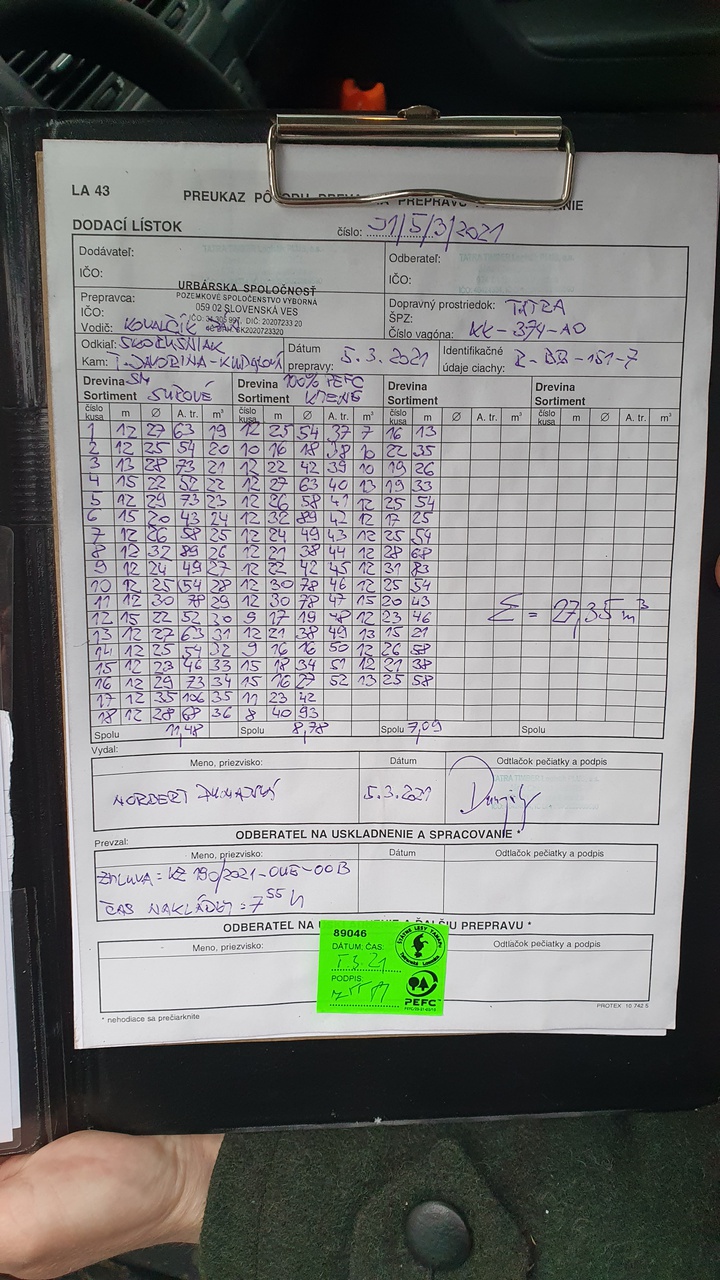 LA 43
PREUKAZ PÔVODU DREVA NA PREPRAVU
DODACÍ LÍSTOK
číslo: 51/5/3/2021
Dodávateľ:
IČO:
Odberateľ:
IČO:
URBÁRSKA SPOLOČNOSŤ
POZEMKOVÉ SPOLOČENSTVO VÝBORNÁ
059 02 SLOVENSKÁ VES
DIČ: 20207233 20
Prepravca:
IČO:
Vodič: KOVALČÍK JÁN
Dopravný prostriedok: TATRA
ŠPZ:
Číslo vagóna: KK-374-AO
Odkiaľ: SKORUŠNIAK
Kam: T. JAVORINA-
Dátum prepravy: 5.3.2021
Identifikačné údaje ciachy: R-BB-151-7
Drevina SM Drevina 100% PEFC Drevina Drevina
Sortiment SUROVÉ Sortiment KMENE Sortiment Sortiment
číslo kusa m Ø A. tr. m³ číslo kusa m Ø A. tr. m³ číslo kusa m Ø A. tr. m³ číslo kusa m Ø A. tr. m³
1 12 27 63 19 12 25 54 37 7 16 13
2 12 25 54 20 10 16 18 38 10 22 35
3 13 28 73 21 12 22 42 39 10 19 26
4 15 22 52 22 12 27 63 40 13 19 33
5 12 29 73 23 12 26 58 41 12 25 54
6 15 20 43 24 12 32 89 42 12 17 25
7 12 26 58 25 12 24 49 43 12 25 54
8 12 32 89 26 12 21 38 44 12 28 68
9 12 24 49 27 12 22 42 45 12 31 83
10 12 25 54 28 12 30 78 46 12 25 54
11 12 30 78 29 12 30 78 47 15 20 43
12 15 22 52 30 9 17 19 48 12 23 46
13 12 27 63 31 12 21 38 49 13 15 21
14 12 25 54 32 9 16 16 50 12 26 58
15 12 23 46 33 15 18 34 51 12 21 38
16 12 29 73 34 15 16 27 52 13 25 58
17 12 35 106 35 11 23 42
18 12 28 68 36 8 40 93
Σ = 27,35 m³
Spolu 11,48 Spolu 8,78 Spolu 7,09 Spolu
Vydal:
Meno, priezvisko: Dátum Odtlačok pečiatky a podpis
NORBERT 5.3.2021
ODBERATEĽ NA USKLADNENIE A SPRACOVANIE *
Prevzal:
Meno, priezvisko: Dátum Odtlačok pečiatky a podpis
ZMLUVA = KZ 190/2021-OUE-00B
ČAS NAKLÁDKY = 7⁵⁵ h
ODBERATEĽ NA PREPRAVU *
Meno, priezvisko: Odtlačok pečiatky a podpis
89046
DÁTUM; ČAS:
5.3.21
PODPIS:
ŠTÁTNE LESY TANAPU
PEFC
* nehodiace sa prečiarknite
PROTEX 10 742 5